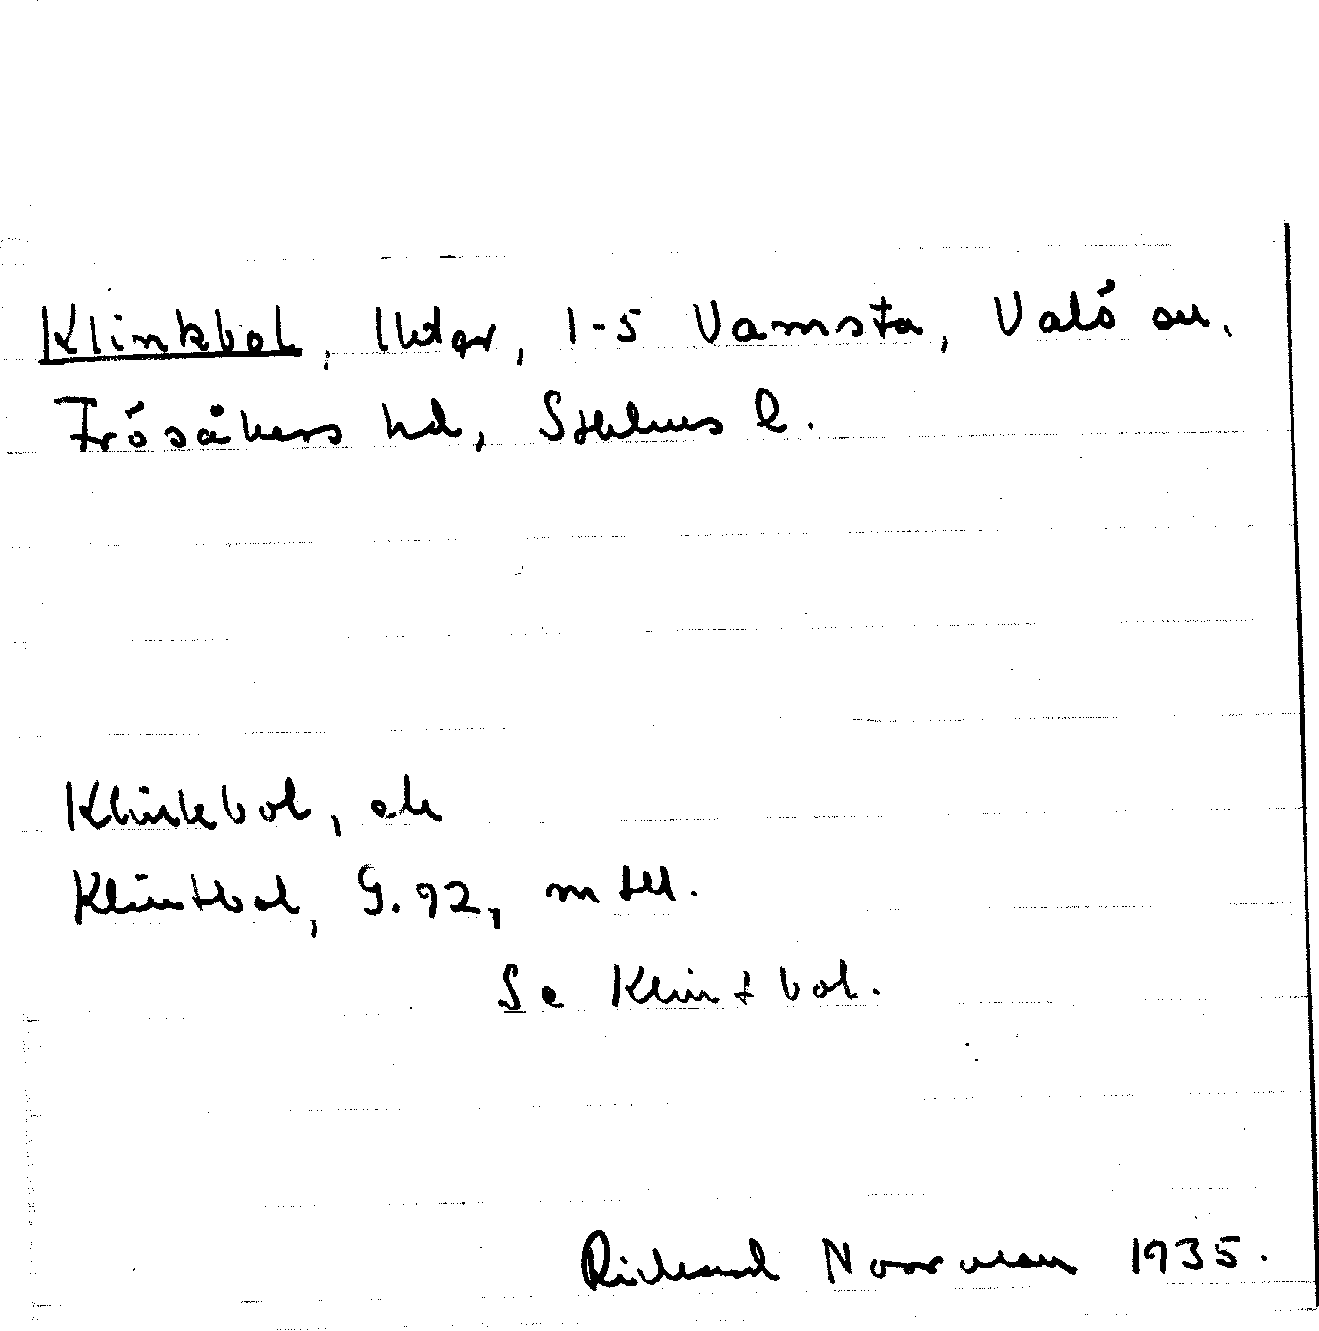 Klinkbol, lhtgr, 1-5 Vamsta, Valö sn.
Frösåkers hd, Sthlms l.
Klinkbol, ek
Klintbol, G. 92, m fll.
Se Klintbol.
Richard Norrman 1935.